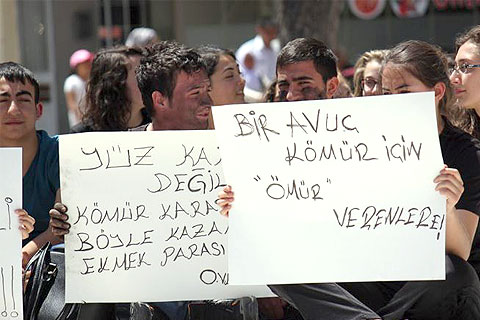 YÜZ
DEĞİL
KÖMÜR
BÖYLE
EKMEK PARASI
BİR AVUÇ
KÖMÜR İÇİN
"ÖMÜR"
VERENLERE!
!!!